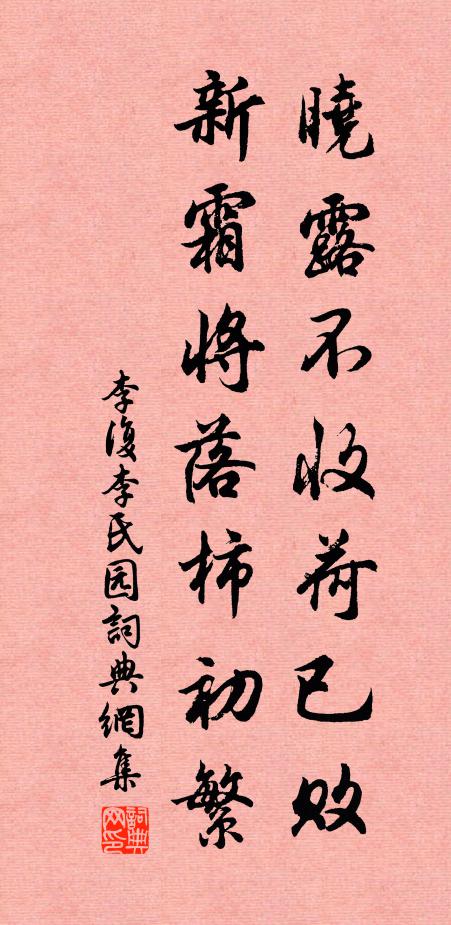 曉露不收荷已敗
新霜將落柿初繁
李復李氏园詞典網集
詞典网印